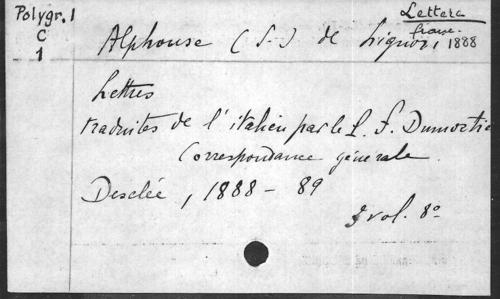 Polygr. 1
C
1
Lettera
franse.
Alphonse (S.) de Liguori, 1888
Lettres
traduites de l'italien par le L. F. Dumortie
Correspondance générale.
Desclée, 1888-89
3 vol. 8º